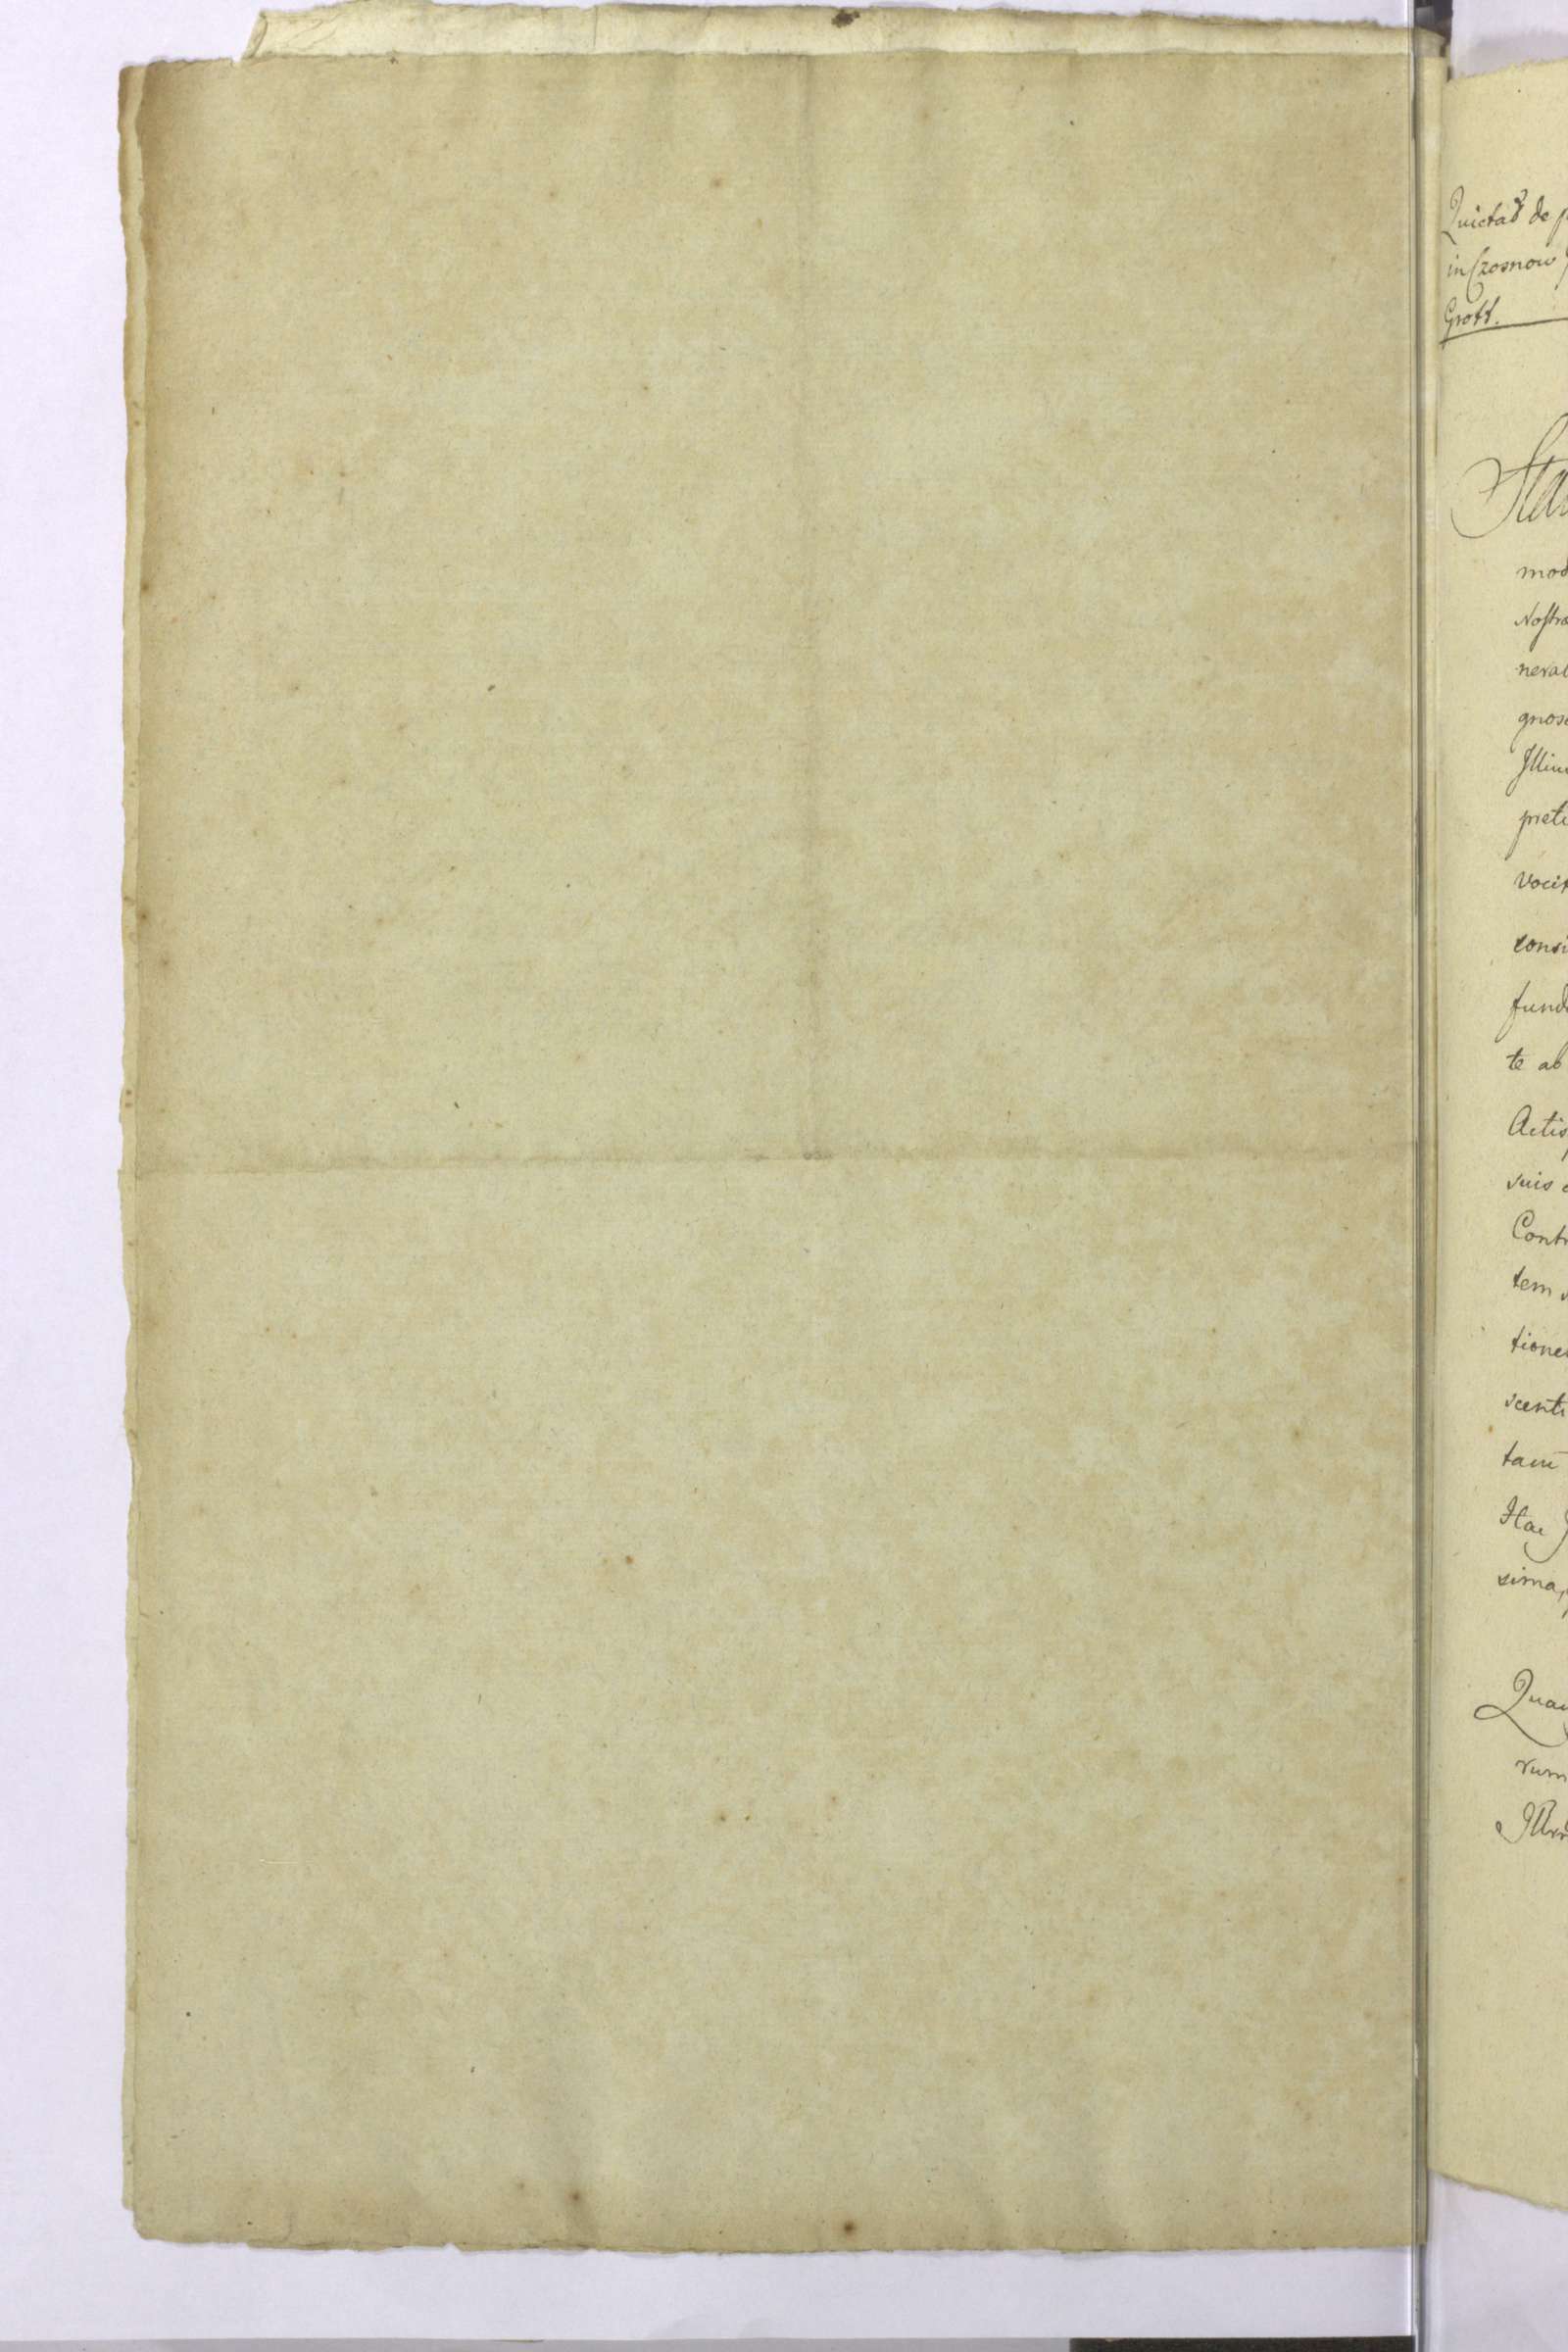 Quietat de p
in Czosnow
Grott.
Sta
mod
Nostra
neral
gnosc
Illiu
preti
vocit
consi
fund
te ab
Actis
suis
Contr
tem
tiones
scenti
tam
Hac
sima,
Qua
rum